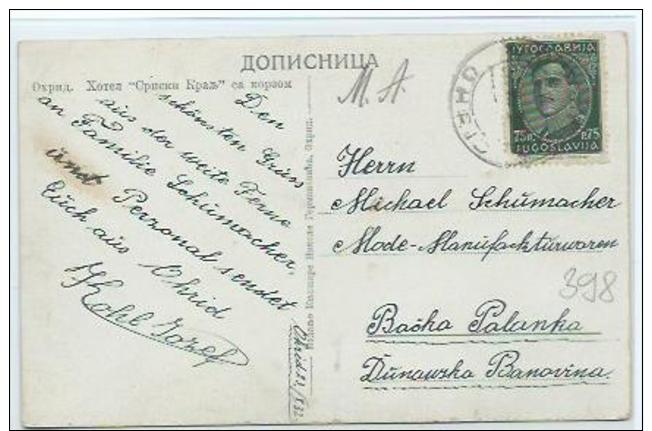 ДОПИСНИЦА
Охрид. Хотел "Српски Краљ" са корзом
Den
schönsten Gruss
aus der weite Ferne
an Familie Schumacher,
und Personal sendet
Euch aus Ohrid
Kohl Josef
M. A
ЈУГОСЛАВИЈА
75П. P.75
JUGOSLAVIJA
Herrn
Michael Schumacher
Mode-Manufackturwaren
398
Bačka Palanka
Dunawska Banovina